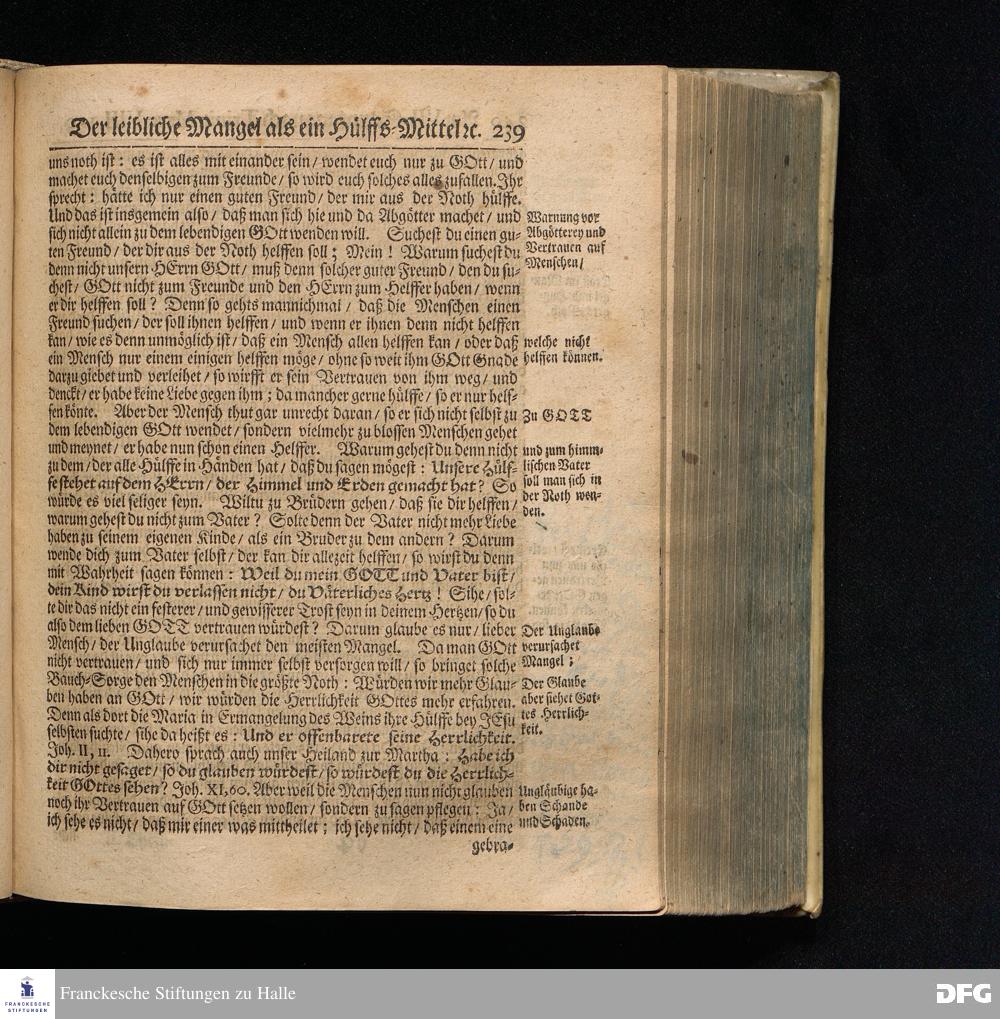 Der leibliche Mangel als ein Hülffs-Mittel ꝛc. 239
uns noth ist: es ist alles mit einander sein/ wendet euch nur zu GOtt/ und
machet euch denselbigen zum Freunde/ so wird euch solches alles zufallen. Ihr
sprecht: hätte ich nur einen guten Freund/ der mir aus der Noth hülffe.
Und das ist insgemein also/ daß man sich hie und da Abgötter machet/ und
sich nicht allein zu dem lebendigen GOtt wenden will. Suchest du einen gu-
ten Freund/ der dir aus der Noth helffen soll; Mein! Warum suchest du
denn nicht unsern HErrn GOtt/ muß denn solcher guter Freund/ den du su-
chest/ GOtt nicht zum Freunde und den HErrn zum Helffer haben/ wenn
er dir helffen soll? Denn so gehts mannichmal/ daß die Menschen einen
Freund suchen/ der soll ihnen helffen/ und wenn er ihnen denn nicht helffen
kan/ wie es denn unmöglich ist/ daß ein Mensch allen helffen kan/ oder daß
ein Mensch nur einem einigen helffen möge/ ohne so weit ihm GOtt Gnade
darzu giebet und verleihet/ so wirfft er sein Vertrauen von ihm weg/ und
denckt/ er habe keine Liebe gegen ihm; da mancher gerne hülffe/ so er nur helf-
fen könte. Aber der Mensch thut gar unrecht daran/ so er sich nicht selbst zu
dem lebendigen GOtt wendet/ sondern vielmehr zu blossen Menschen gehet
und meynet/ er habe nun schon einen Helffer. Warum gehest du denn nicht
zu dem/ der alle Hülffe in Händen hat/ daß du sagen mögest: Unsere Hülf-
fe stehet auf dem HErrn/ der Himmel und Erden gemacht hat? So
würde es viel seliger seyn. Wiltu zu Brüdern gehen/ daß sie dir helffen/
warum gehest du nicht zum Vater? Solte denn der Vater nicht mehr Liebe
haben zu seinem eigenen Kinde/ als ein Bruder zu dem andern? Darum
wende dich zum Vater selbst/ der kan dir allezeit helffen/ so wirst du denn
mit Wahrheit sagen können: Weil du mein GOTT und Vater bist/
dein Kind wirst du verlassen nicht/ du Väterliches Hertz! Sihe/ sol-
te dir das nicht ein festerer/ und gewisserer Trost seyn in deinem Hertzen/ so du
also dem lieben GOTT vertrauen würdest? Darum glaube es nur/ lieber
Mensch/ der Unglaube verursachet den meisten Mangel. Da man GOtt
nicht vertrauen/ und sich nur immer selbst versorgen will/ so bringet solche
Bauch-Sorge den Menschen in die größte Noth: Würden wir mehr Glau-
ben haben an GOtt/ wir würden die Herrlichkeit GOttes mehr erfahren.
Denn als dort die Maria in Ermangelung des Weins ihre Hülffe bey JEsu
selbsten suchte/ sihe da heißt es: Und er offenbarete seine Herrlichkeit.
Joh. II, 11. Dahero sprach auch unser Heiland zur Martha: Habe ich
dir nicht gesaget/ so du glauben würdest/ so würdest du die Herrlich-
keit GOttes sehen? Joh. XI, 60. Aber weil die Menschen nun nicht glauben
noch ihr Vertrauen auf GOtt setzen wollen/ sondern zu sagen pflegen: Ja/
ich sehe es nicht/ daß mir einer was mittheilet; ich sehe nicht/ daß einem eine
gebra-
Warnung vor
Abgötterey und
Vertrauen auf
Menschen/
welche nicht
helffen können.
Zu GOTT
und zum himm-
lischen Vater
soll man sich in
der Noth wen-
den.
Der Unglaube
verursachet
Mangel;
Der Glaube
aber siehet Got-
tes Herrlich-
keit.
Ungläubige ha-
ben Schande
und Schaden.
FRANCKESCHE
STIFTUNGEN
Franckesche Stiftungen zu Halle
DFG